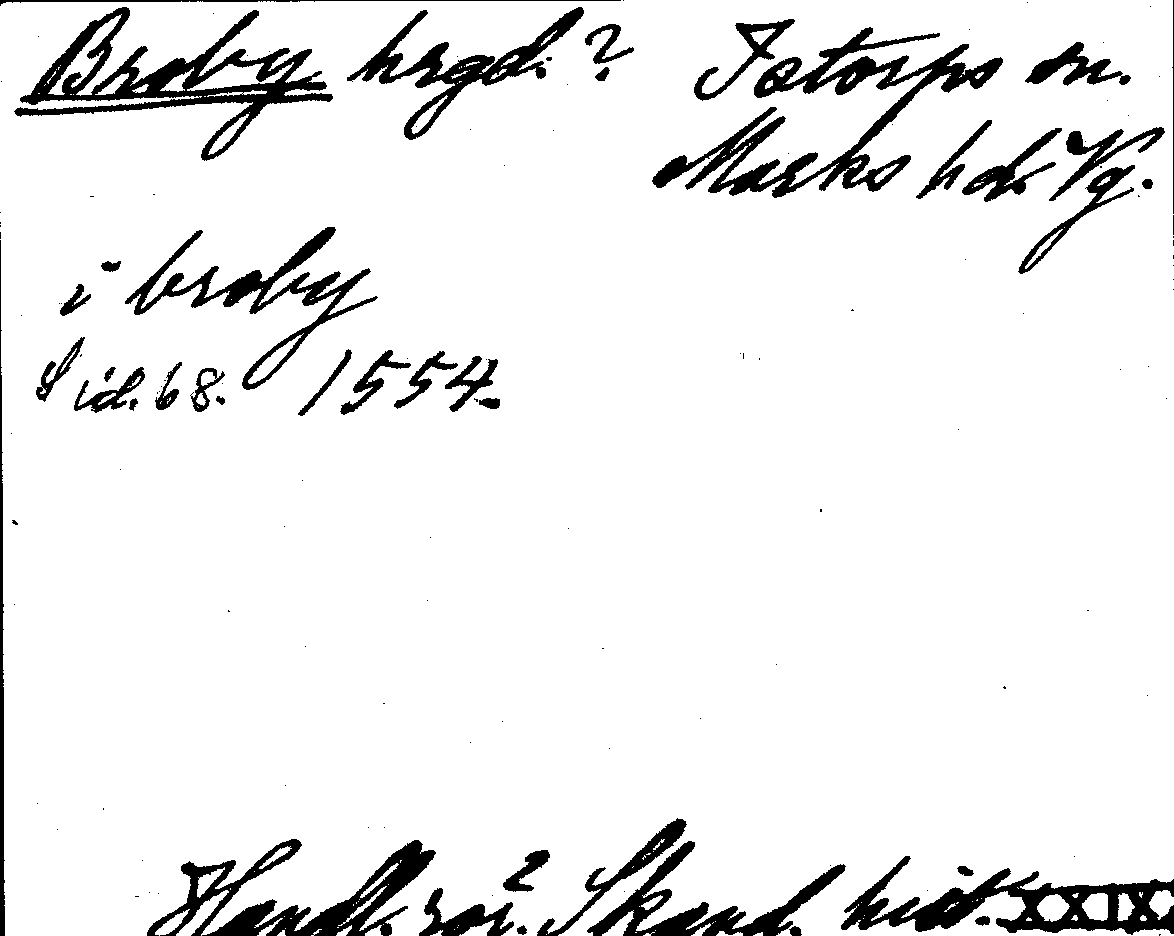 Broby hrgd. ? Istorps sn.
Marks hd. Vg.
i broby
Sid. 68. 1554.
Handl. rör. Skand. hist. XXIX